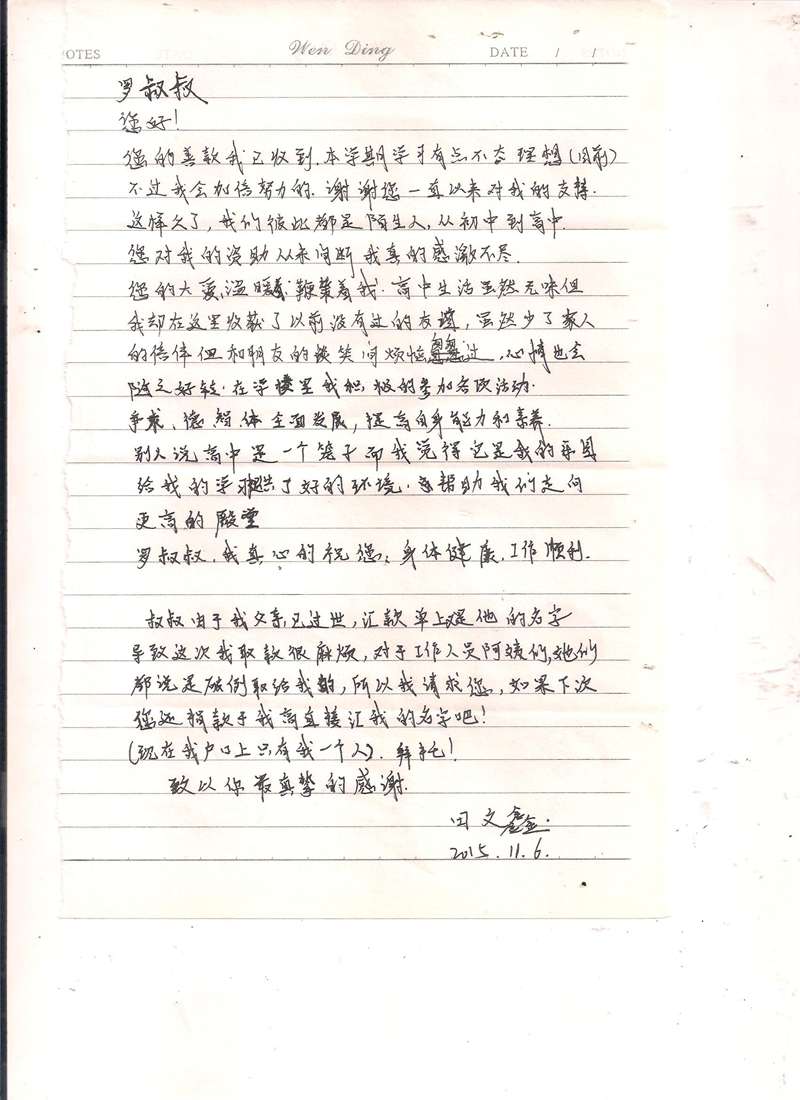 OTES Wen Ding DATE / /
罗叔叔
您好!
您的善款我已收到.本学期学习有点不太理想(目前)
不过我会加倍努力的.谢谢您一直以来对我的支持.
这样久了,我们彼此都是陌生人,从初中到高中.
您对我的资助从来间断我真的感激不尽.
您的大爱,温暖鞭策着我.高中生活虽然无味但
我却在这里收获了以前没有过的友谊,虽然少了家人
的倍伴但和朋友的谈笑间烦恼过,心情也会
随之好转.在学楼里我积极的参加各次活动.
争求、德.智.体全面发展,提高自身能力和素养.
别人说高中是一个笼子而我觉得它是我的乐园
给我的学习提供了好的环境.帮助我们走向
更高的殿堂
罗叔叔,我真心的祝您:身体健康,工作顺利.
叔叔由于我父亲已过世,汇款单上是他的名字
导致这次我取款很麻烦,对于工作人员阿姨们,她们
都说是破例取给我的,所以我请求您,如果下次
您还捐款于我高直接汇我的名字吧!
(现在我户口上只有我一个人).拜托!
致以你最真挚的感谢.
田文鑫.
2015.11.6.